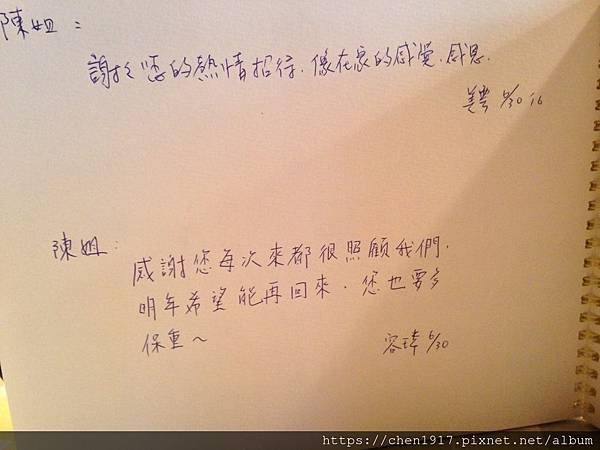 陳姐:
謝於您的熱情招待.像在家的感覺.感恩.
美雪 6/30 16
陳姐:
感謝您每次來都很照顧我們.
明年希望能再回來.您也要多
保重~
容瑋 6/30
https://chen1917.pixnet.net/album